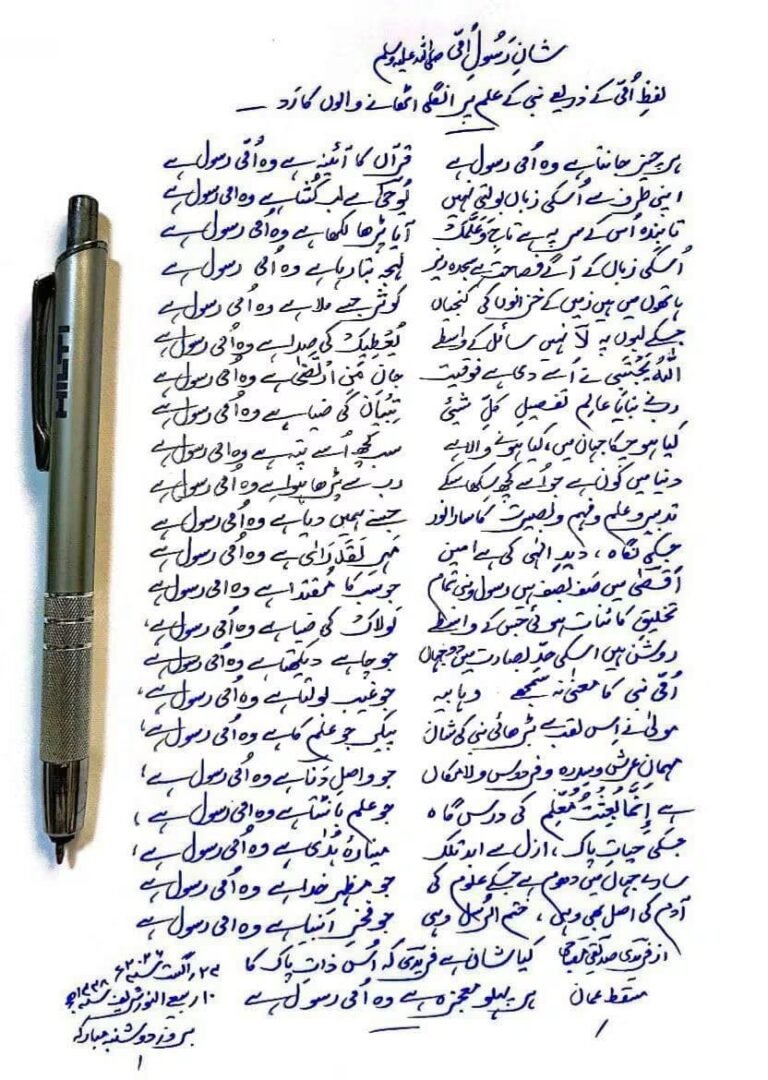 شانِ رَسُولِ اُمّی صلی اللہ علیہ وسلم
لفظِ اُمّی کے ذریعے نبی کے علم پر انگلی اٹھانے والوں کا رَد
ہر چیز جانتا ہے وہ اُمی رسول ہے قرآں کا آئینہ ہے وہ اُمّی رسول ہے
اپنی طرف سے اُسکی زباں بولتی نہیں یُوحیٰ سے لب کُشا ہے وہ امی رسول ہے
تابندہ اُس کے سر پہ ہے تاجِ وَعَلَّمَکَ آیا پڑھا لکھا ہے وہ اُمی رسول ہے
اُسکی زباں کے آگے فصاحت ہے سجدہ ریز لہجہ بتا رہا ہے وہ اُمی رسول ہے
ہاتھوں میں ہیں زمیں کے خزانوں کی کنجیاں کوثر جسے ملا ہے وہ اُمی رسول ہے
جسکے لبوں پہ لَا نہیں سائل کے واسطے یُعْطِیْکَ کی صدا ہے وہ اُمی رسول ہے
اللہُ یَجْتَبِی نے اُسے دی ہے فوقیت جانِ مَنِ ارْتَضیٰ ہے وہ اُمی رسول ہے
رب نے بنایا عالمِ تفصیلِ کلِّ شیئ تِبْیَان کی ضیا ہے وہ اُمی رسول ہے
کیا ہو چکا جہاں میں، کیا ہونے والا ہے سب کچھ اُسے پتہ ہے وہ امی رسول ہے
دنیا میں کون ہے جو اُسے کچھ سکھا سکے رب سے پڑھا ہوا ہے وہ اُمی رسول ہے
تدبیر و علم و فہم و بصیرت کا سارا نور جسنے ہمیں دیا ہے وہ اُمی رسول ہے
جسکی نگاہ، دیدِ الٰہی کی ہے امین مہرِ لَقَدْ رَاٰی ہے وہ اُمی رسول ہے
اَقصیٰ میں صف بصف ہیں رسول و نبی تمام جو سب کا مُقتدا ہے وہ امی رسول ہے
تخلیقِ کائنات ہوئی جس کے واسطے لَولاک کی ضیا ہے وہ اُمی رسول ہے
روشن ہیں اسکی حدِّ بصارت میں دو جہاں جو چاہے دیکھتا ہے وہ اُمی رسول ہے
اُمّی نبی کا معنیٰ نہ سمجھے وہابیہ جو غیب بولتا ہے وہ اُمی رسول ہے
مولیٰ نے اِس لقب سے بڑھائی نبی کی شان پیکر جو علم کا ہے وہ اُمی رسول ہے
مہمانِ عرش و سدرہ و فردوس و لامکاں جو واصلِ دَنا ہے وہ اُمی رسول ہے
ہے اِنَّمَا بُعِثْتُ مُعَلِّم کی درس گاہ جو علم بانٹتا ہے وہ امی رسول ہے
جسکی حیاتِ پاک، ازل سے ابد تلک مینارۂ ہُدٰی ہے وہ اُمی رسول ہے
سارے جہاں میں دھوم ہے جسکے علوم کی جو مظہرِ خدا ہے وہ اُمی رسول ہے
آدم کی اصل بھی وہیں، ختم الرُّسل وہی جو فخرِ اَنبیا ہے وہ امی رسول ہے
کیا شان ہے فریدی کہ اُس ذاتِ پاک کا
ہر پہلو معجزہ ہے وہ اُمی رسول ہے
از فریدی صدیقی مصباحی
مسقط عمان
ربیع النور شریف
بروز دوشنبہ مبارکہ
HILTI